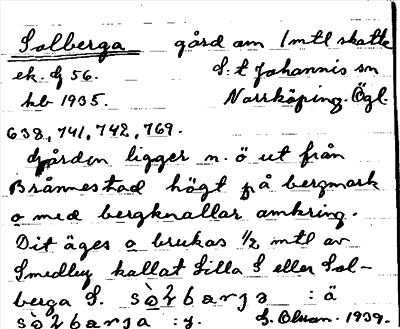 Solberga gård om 1 mtl skatte
ek. bl 56. S:t Johannis sn
hb 1935. Norrköping. Ögl.
638, 741, 742, 769.
Gården ligger n. ö ut från
Brånnestad högt på bergmark
o med bergknallar omkring.
Dit äges o brukas 1/2 mtl av
Smedby kallat Lilla S eller Sol-
berga S. : ä
: y. G. Olson. 1939.